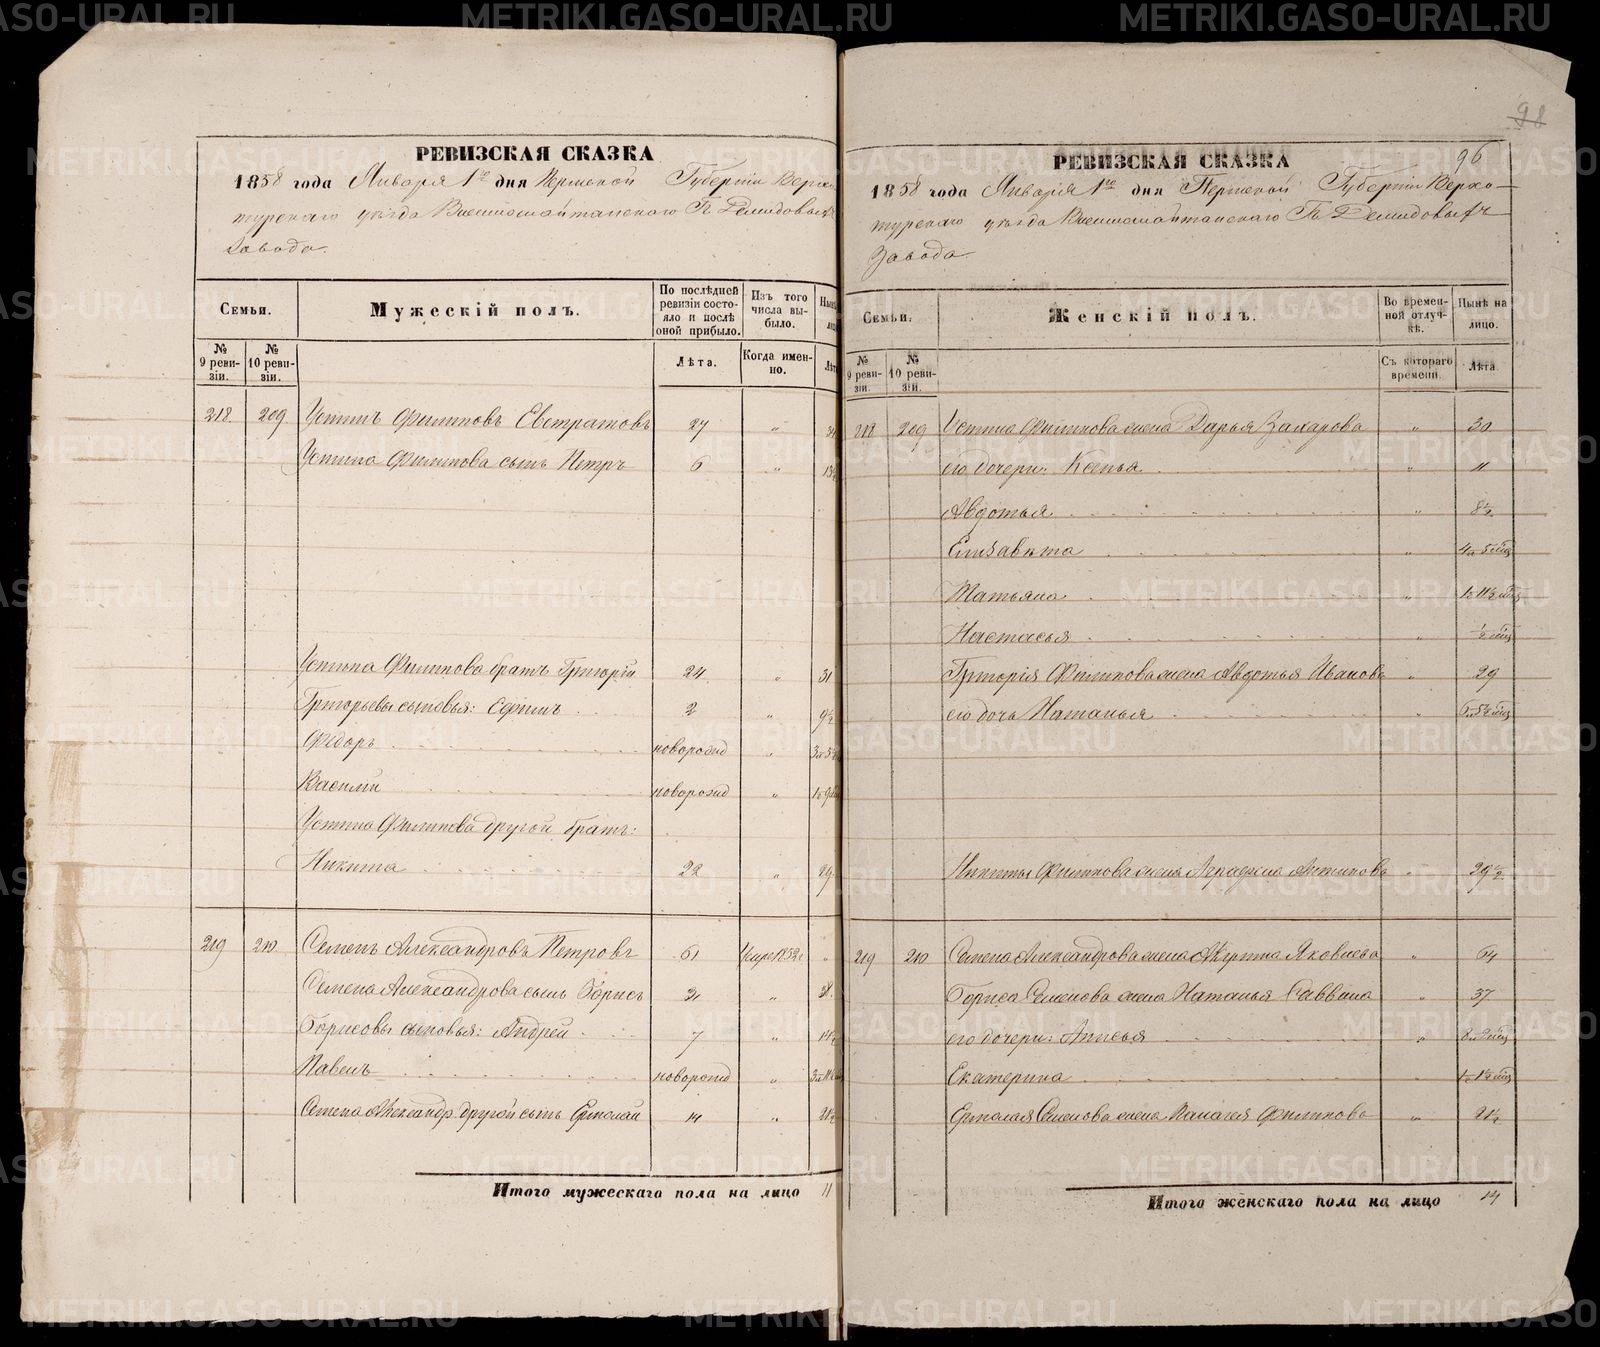 РЕВИЗСКАЯ СКАЗКА
1858 года Января 1го дня Пермской Губернии Верхо-
турскаго уѣзда Висимошайтанскаго Гг Демидовыхъ
Завода.
Семьи.
№ 9 реви-зіи.
№ 10 реви-зіи.
Мужескій полъ.
По послѣдней ревизіи состо-яло и послѣ оной прибыло.
Лѣта.
Изъ того числа вы-было.
Когда имен-но.
218. 209. Устинъ Филиповъ Евстратовъ 27 „
Устина Филипова сынъ Петръ 6 „ 13½
Устина Филипова братъ Григорій 24 „ 31
Григорьевы сыновья: Ефимъ 2 „ 9½
Федоръ новорожд „
Василій новорожд „
Устина Филипова другой братъ:
Никита 22 „ 29
219 210. Семенъ Александровъ Петровъ 61 Умре 1852г „
Семена Александрова сынъ Борисъ 31 „ 38.
Борисовы сыновья: Андрей 7 „ 14½
Павелъ новорожд „
Семена Александр. другой сынъ Ермолай 14 „ 21½
Итого мужескаго пола на лицо 11
98
96
РЕВИЗСКАЯ СКАЗКА
1858 года Января 1го дня Пермской Губерніи Верхо-
турскаго уѣзда Висимошайтанскаго Гг Демидовыхъ
Завода
Семьи.
№ 9 реви-зіи.
№ 10 реви-зіи.
Женскій полъ.
Во времен-ной отлуч-кѣ.
Съ котораго времени.
Нынѣ на лицо.
Лѣта.
218 209 Устина Филипова жена Дарья Захарова „ 30
его дочери: Ксенья „ 11
Авдотья „ 8½
Елизавѣта „ 4 и 5 мѣс
Татьяна „
Настасья „ ½ мѣс
Григорія Филипова жена Авдотья Иванова „ 29
его дочь Наталья „
Никиты Филипова жена Аграфена Антипова „ 29½
219 210 Семена Александрова жена Акулина Яковлева „ 64
Бориса Семенова жена Наталья Саввина „ 37
его дочери: Анисья „
Екатерина „
Ермолая Семенова жена Палагея Филипова „ 21½
Итого женскаго пола на лицо 14
METRIKI.GASO-URAL.RU